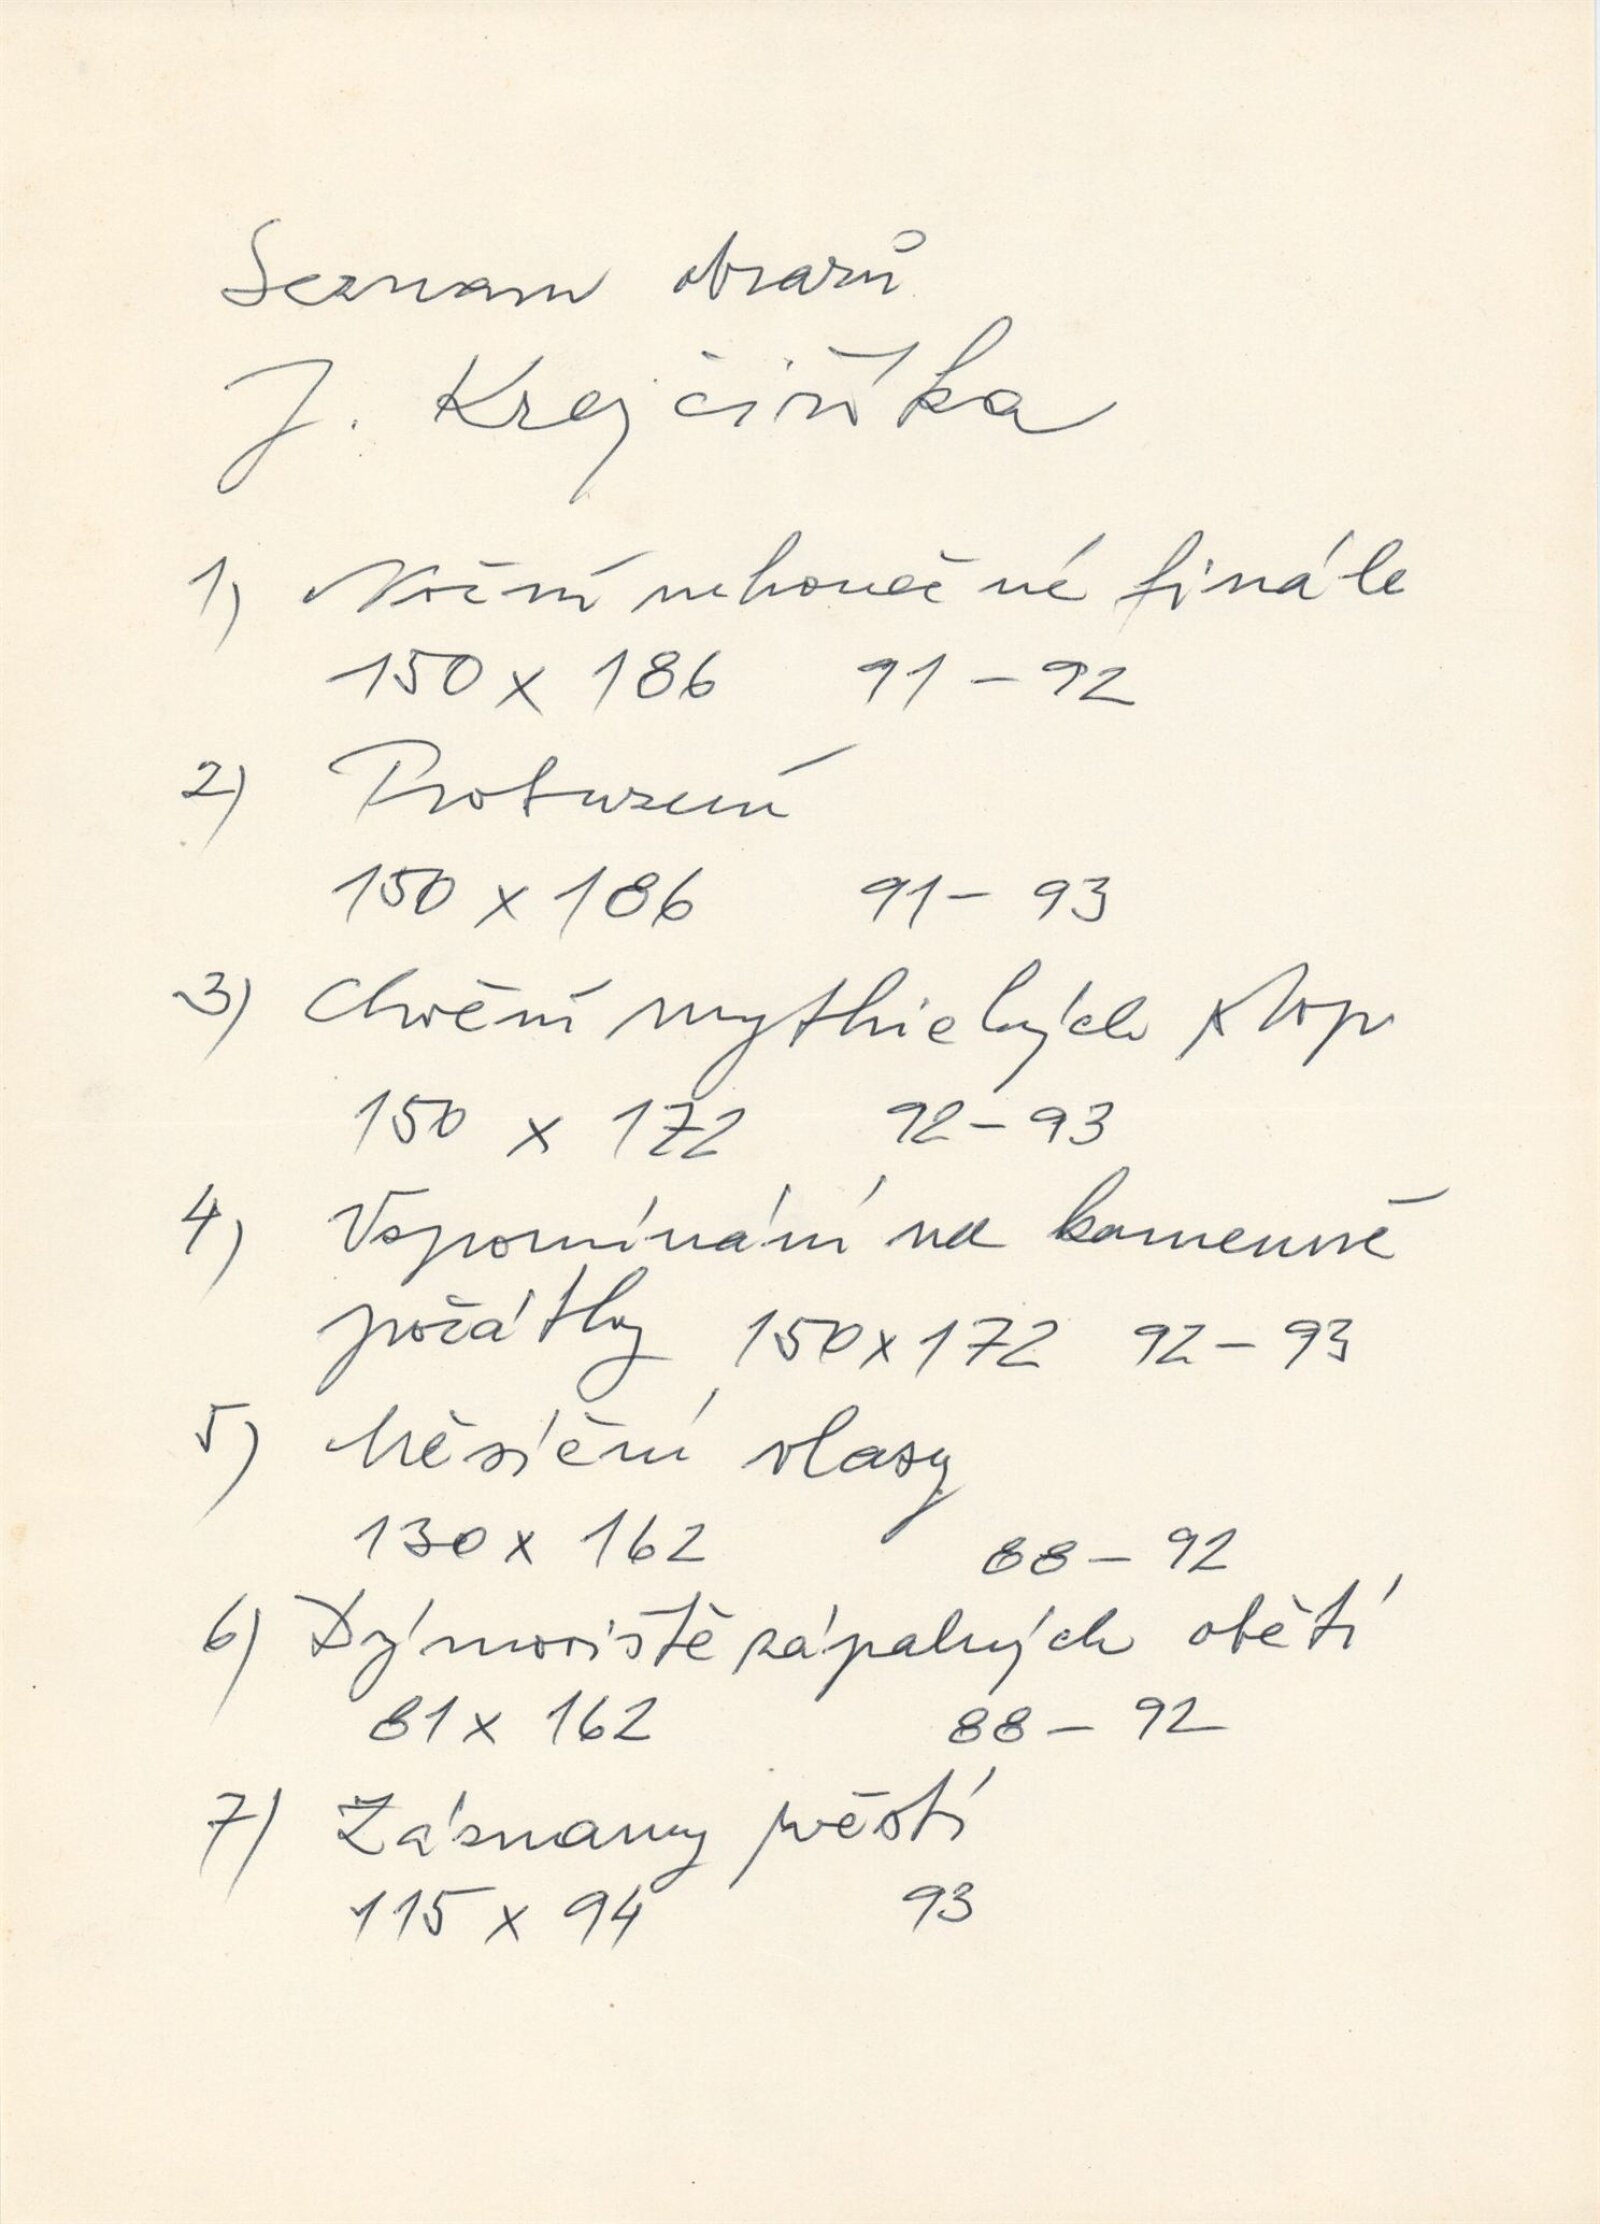 Seznam obrazů
J. Krejčiříka
1) Noční nekonečné finále
150 x 186 91 – 92
2) Protnutí
150 x 186 91 – 93
3) Chvění mythických stop
150 x 172 92 – 93
4) Vzpomínání na kamenné
počátky 150 x 172 92 – 93
5) Měsíční vlasy
130 x 162 88 – 92
6) Dýmoviště zápalných obětí
81 x 162 88 – 92
7) Záznamy pověstí
115 x 94 93